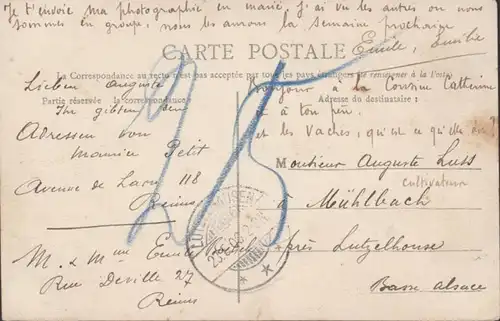 Je t'envoie ma photographie en marié, j'ai vu les autres ou nous
sommes en groupe, nous les aurons la semaine prochaine
Emile, Emilie
CARTE POSTALE
La Correspondance au recto n'est pas acceptée par tous les pays étrangers (Se renseigner à la Poste)
Partie réservée à la correspondance
Adresse du destinataire :
Lieben Auguste
Ihr gibten
Adressen von
Maurice Petit
Avenue de Laon 118
Reims
M. & Mme Emile
Rue Deville 27
Reims
Bonjour à la Cousine Catherine
et à ton père
et les Vaches, qu'est ce qu'elles
Monsieur Auguste Luss
cultivateur
à Mühlbach
près Lutzelhouse
Basse Alsace
25
LUTZELHAUSEN